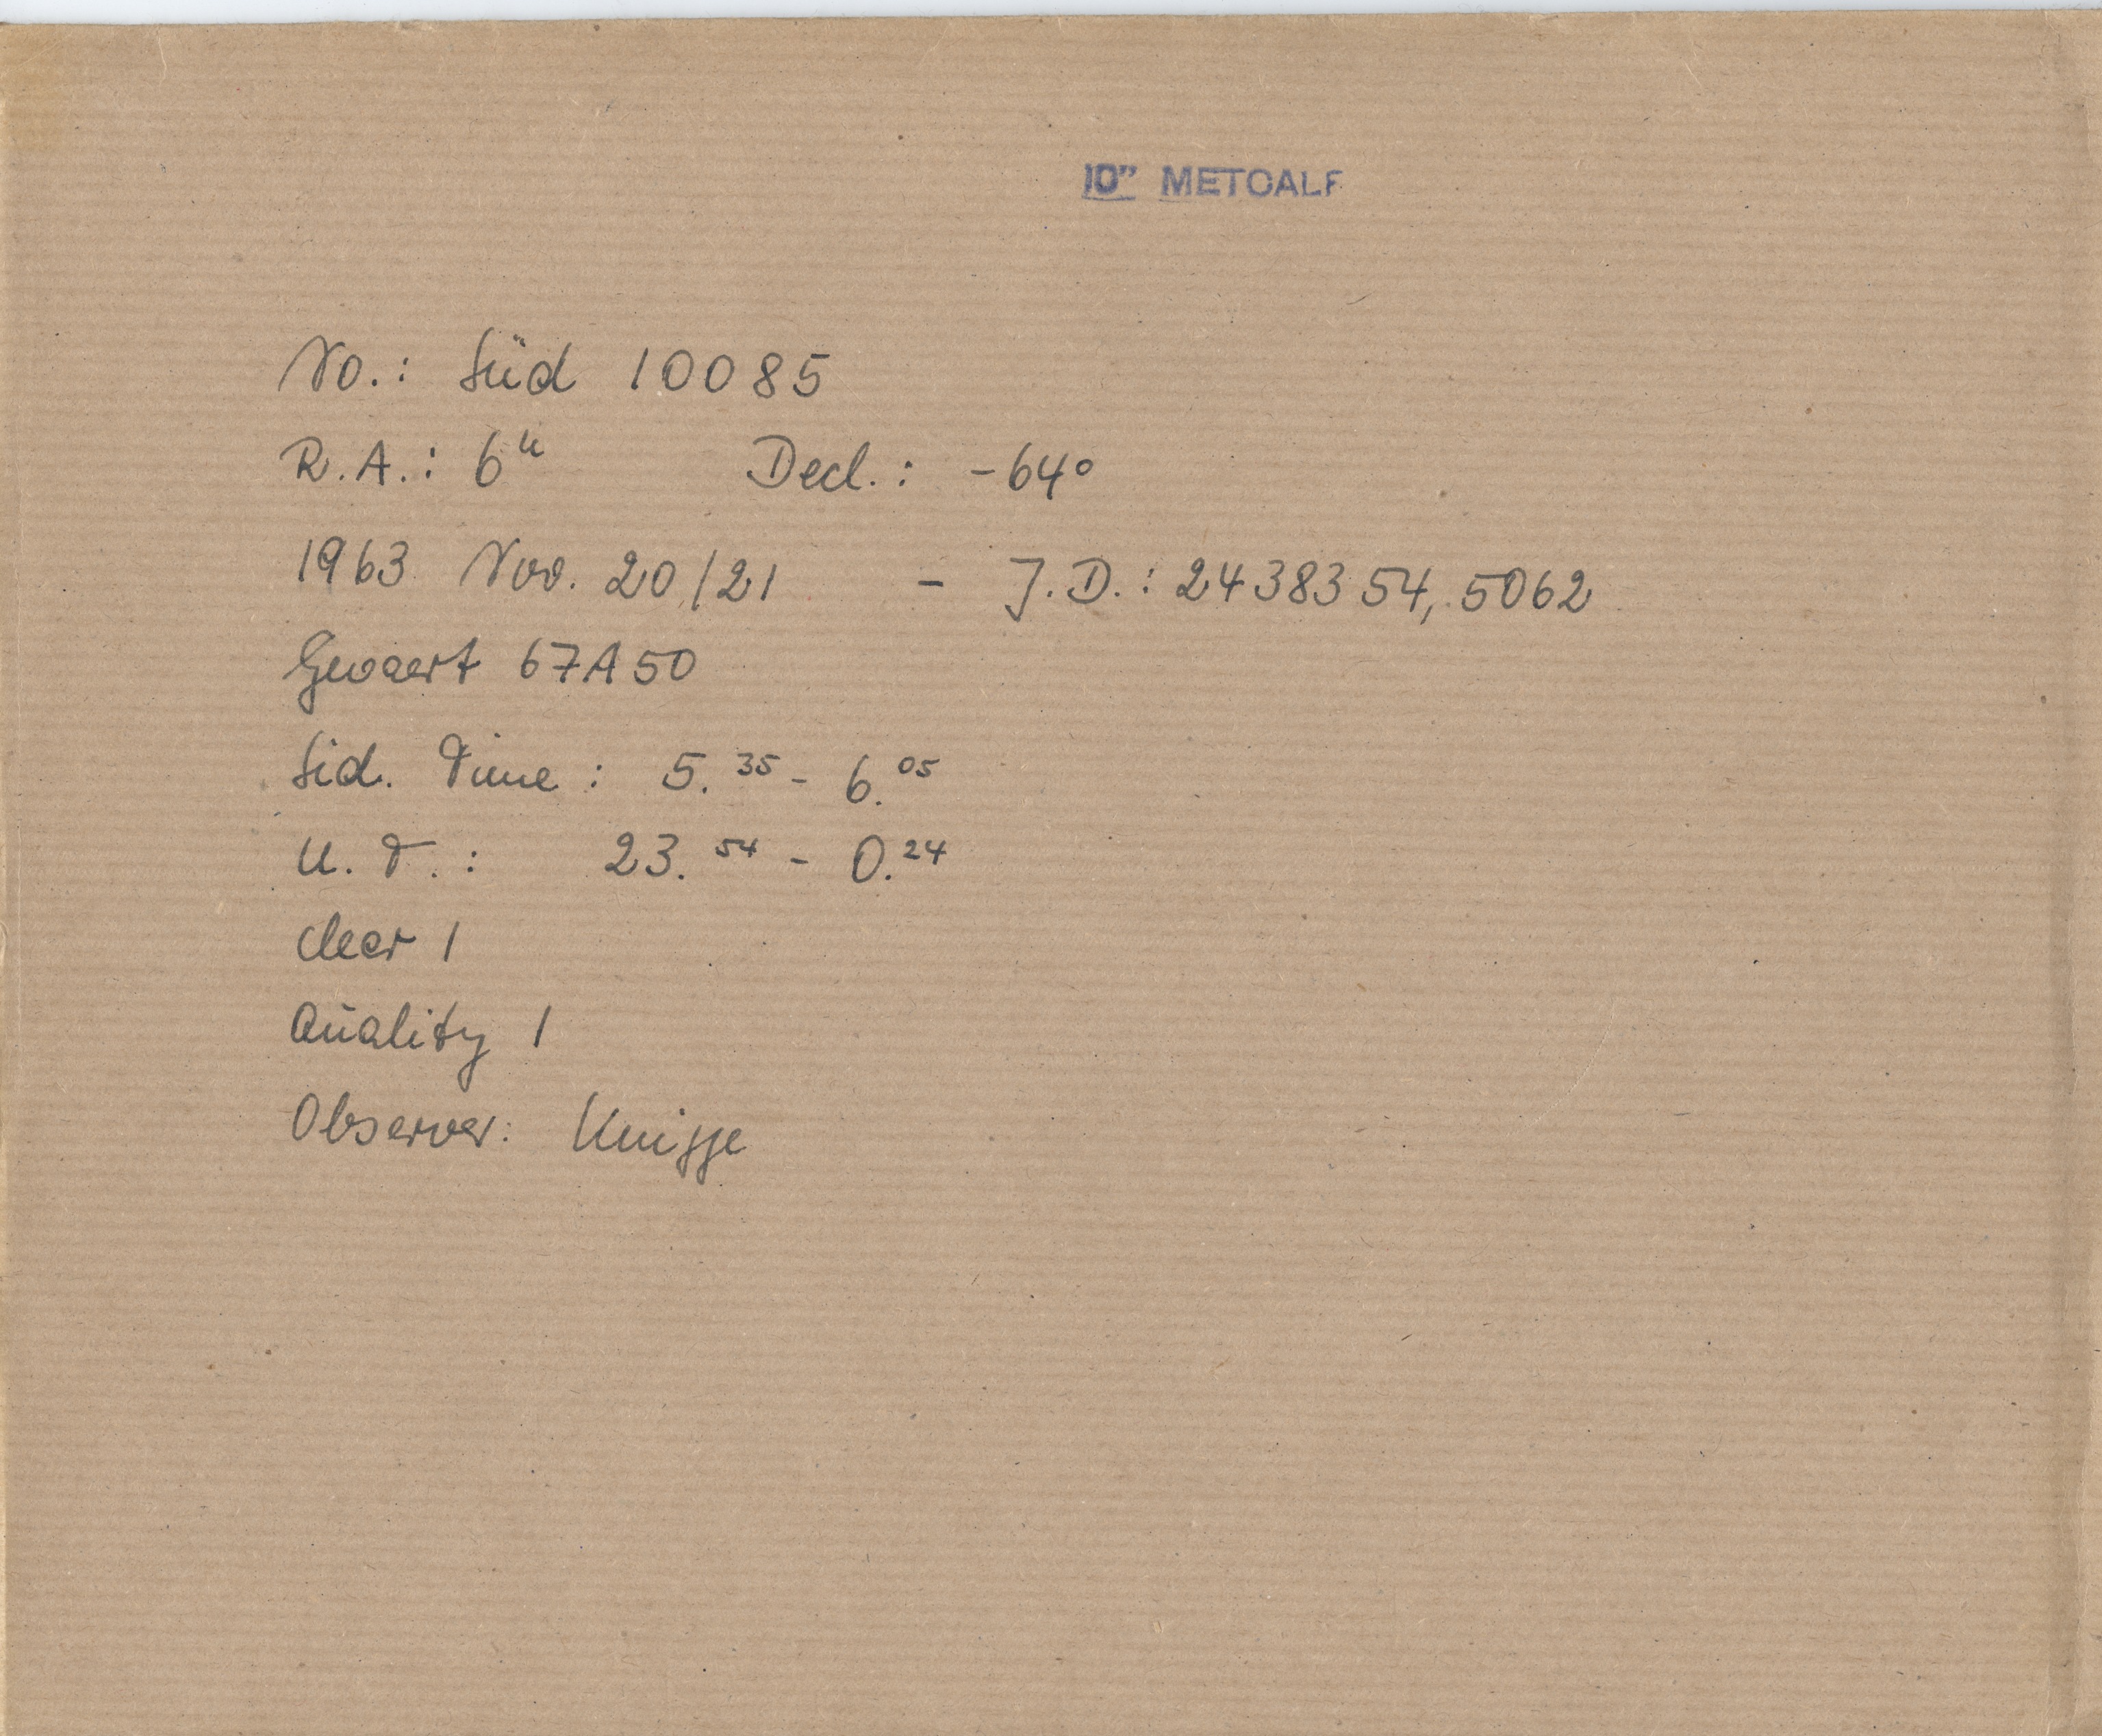 10" METCALF
No.: Süd 10085
R.A.: 6ʰ Decl.: -64°
1963 Nov. 20/21 - J.D.: 2438354,5062
Gevaert 67A50
Sid. Time: 5.³⁵ - 6.⁰⁵
U.T.: 23.⁵⁴ - 0.²⁴
clear 1
Quality 1
Observer: Knigge